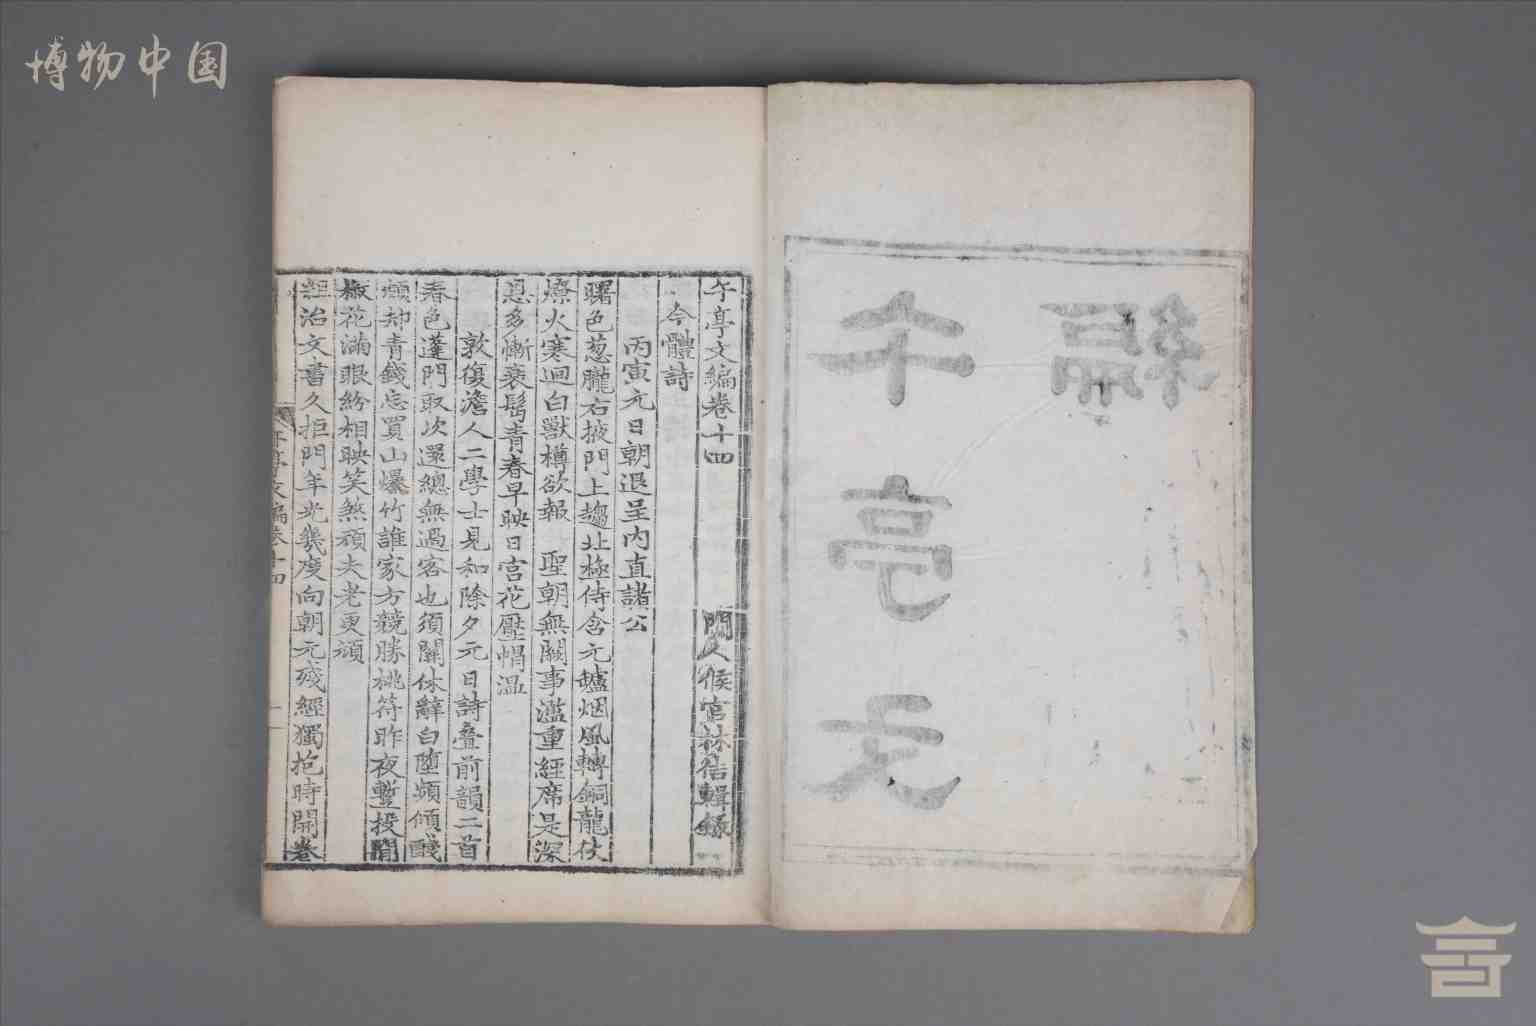 博物中国
午亭文編
午亭文編卷十四
門人候官林佶輯録
今體詩
丙寅元日朝退呈內直諸公
曙色葱朧右掖門上趨北極侍含元罏烟風轉銅龍仗
燎火寒迴白獸樽欲報 聖朝無闕事濫重經席是深
恩多慚衰髩青春早映日宮花壓帽温
敦復澹人二學士見和除夕元日詩叠前韻二首
春色蓬門取次還總無過客也須關休辭白墮頻傾醆
頻却青錢忘買山爆竹誰家方競勝桃符昨夜蹔投閒
椒花滿眼紛相映笑煞頑夫老更頑
經治文書久拒門年光幾度向朝元殘經獨抱時開卷
午亭文編卷十四